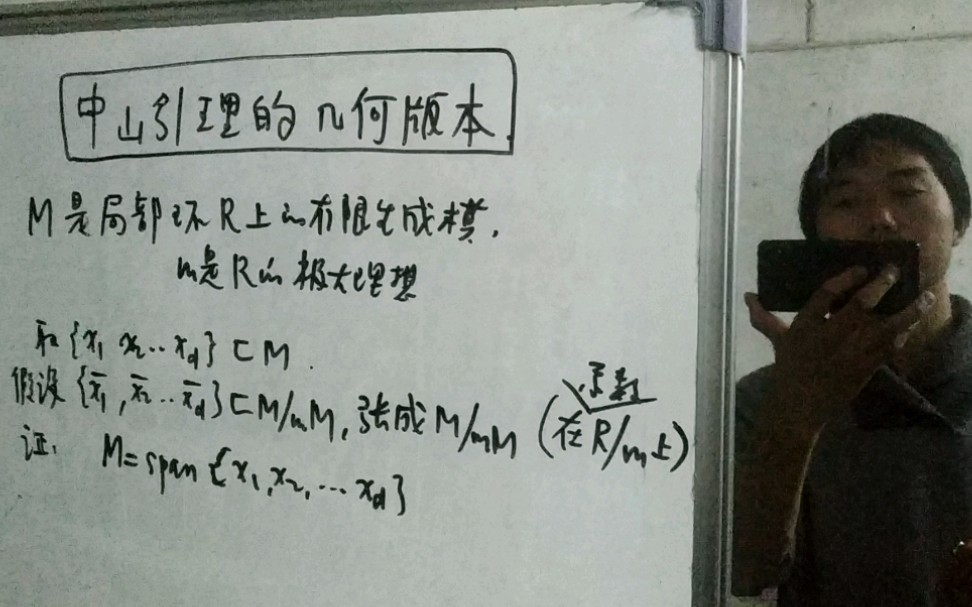 中山引理的几何版本.
M是局部环R上的有限生成模,
m是R的极大理想
取{x₁ x₂··x_d}⊂M.
假设{x̄₁,x̄₂··x̄_d}⊂M/mM,张成M/mM(在R/m上)
系数
证: M=span{x₁,x₂,···x_d}